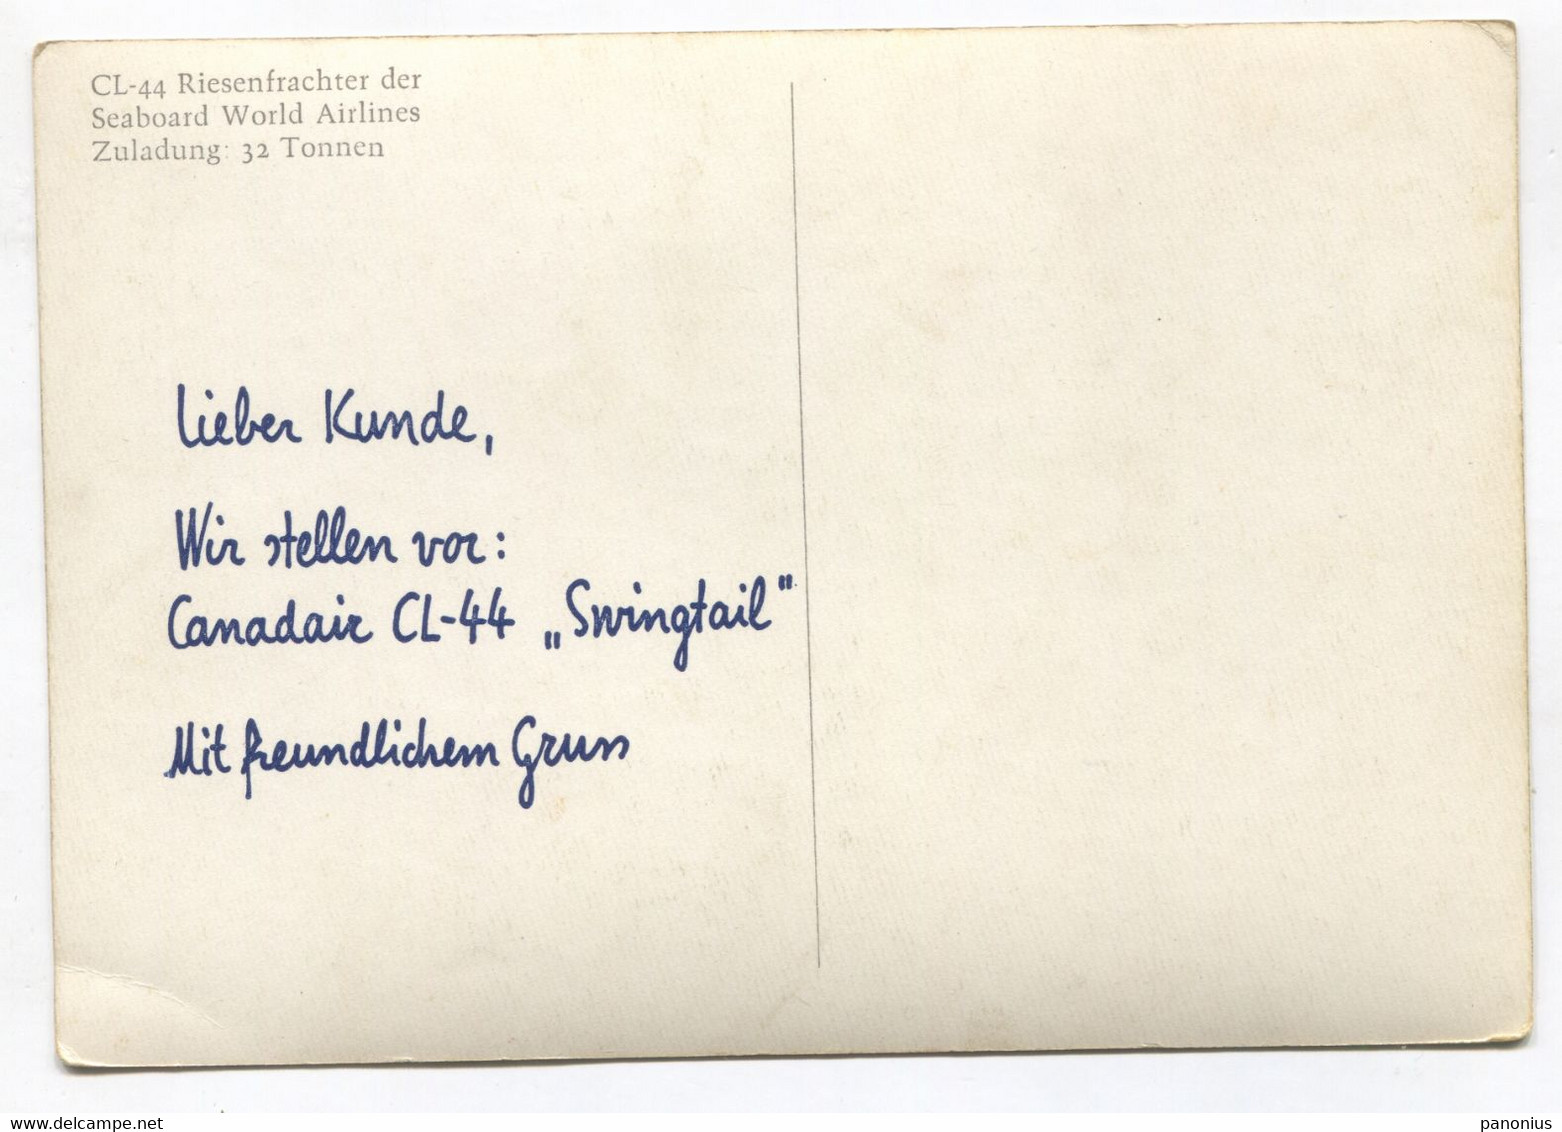 CL-44 Riesenfrachter der
Seaboard World Airlines
Zuladung: 32 Tonnen
Lieber Kunde,
Wir stellen vor:
Canadair CL-44 „Swingtail"
Mit freundlichem Gruss
panonius